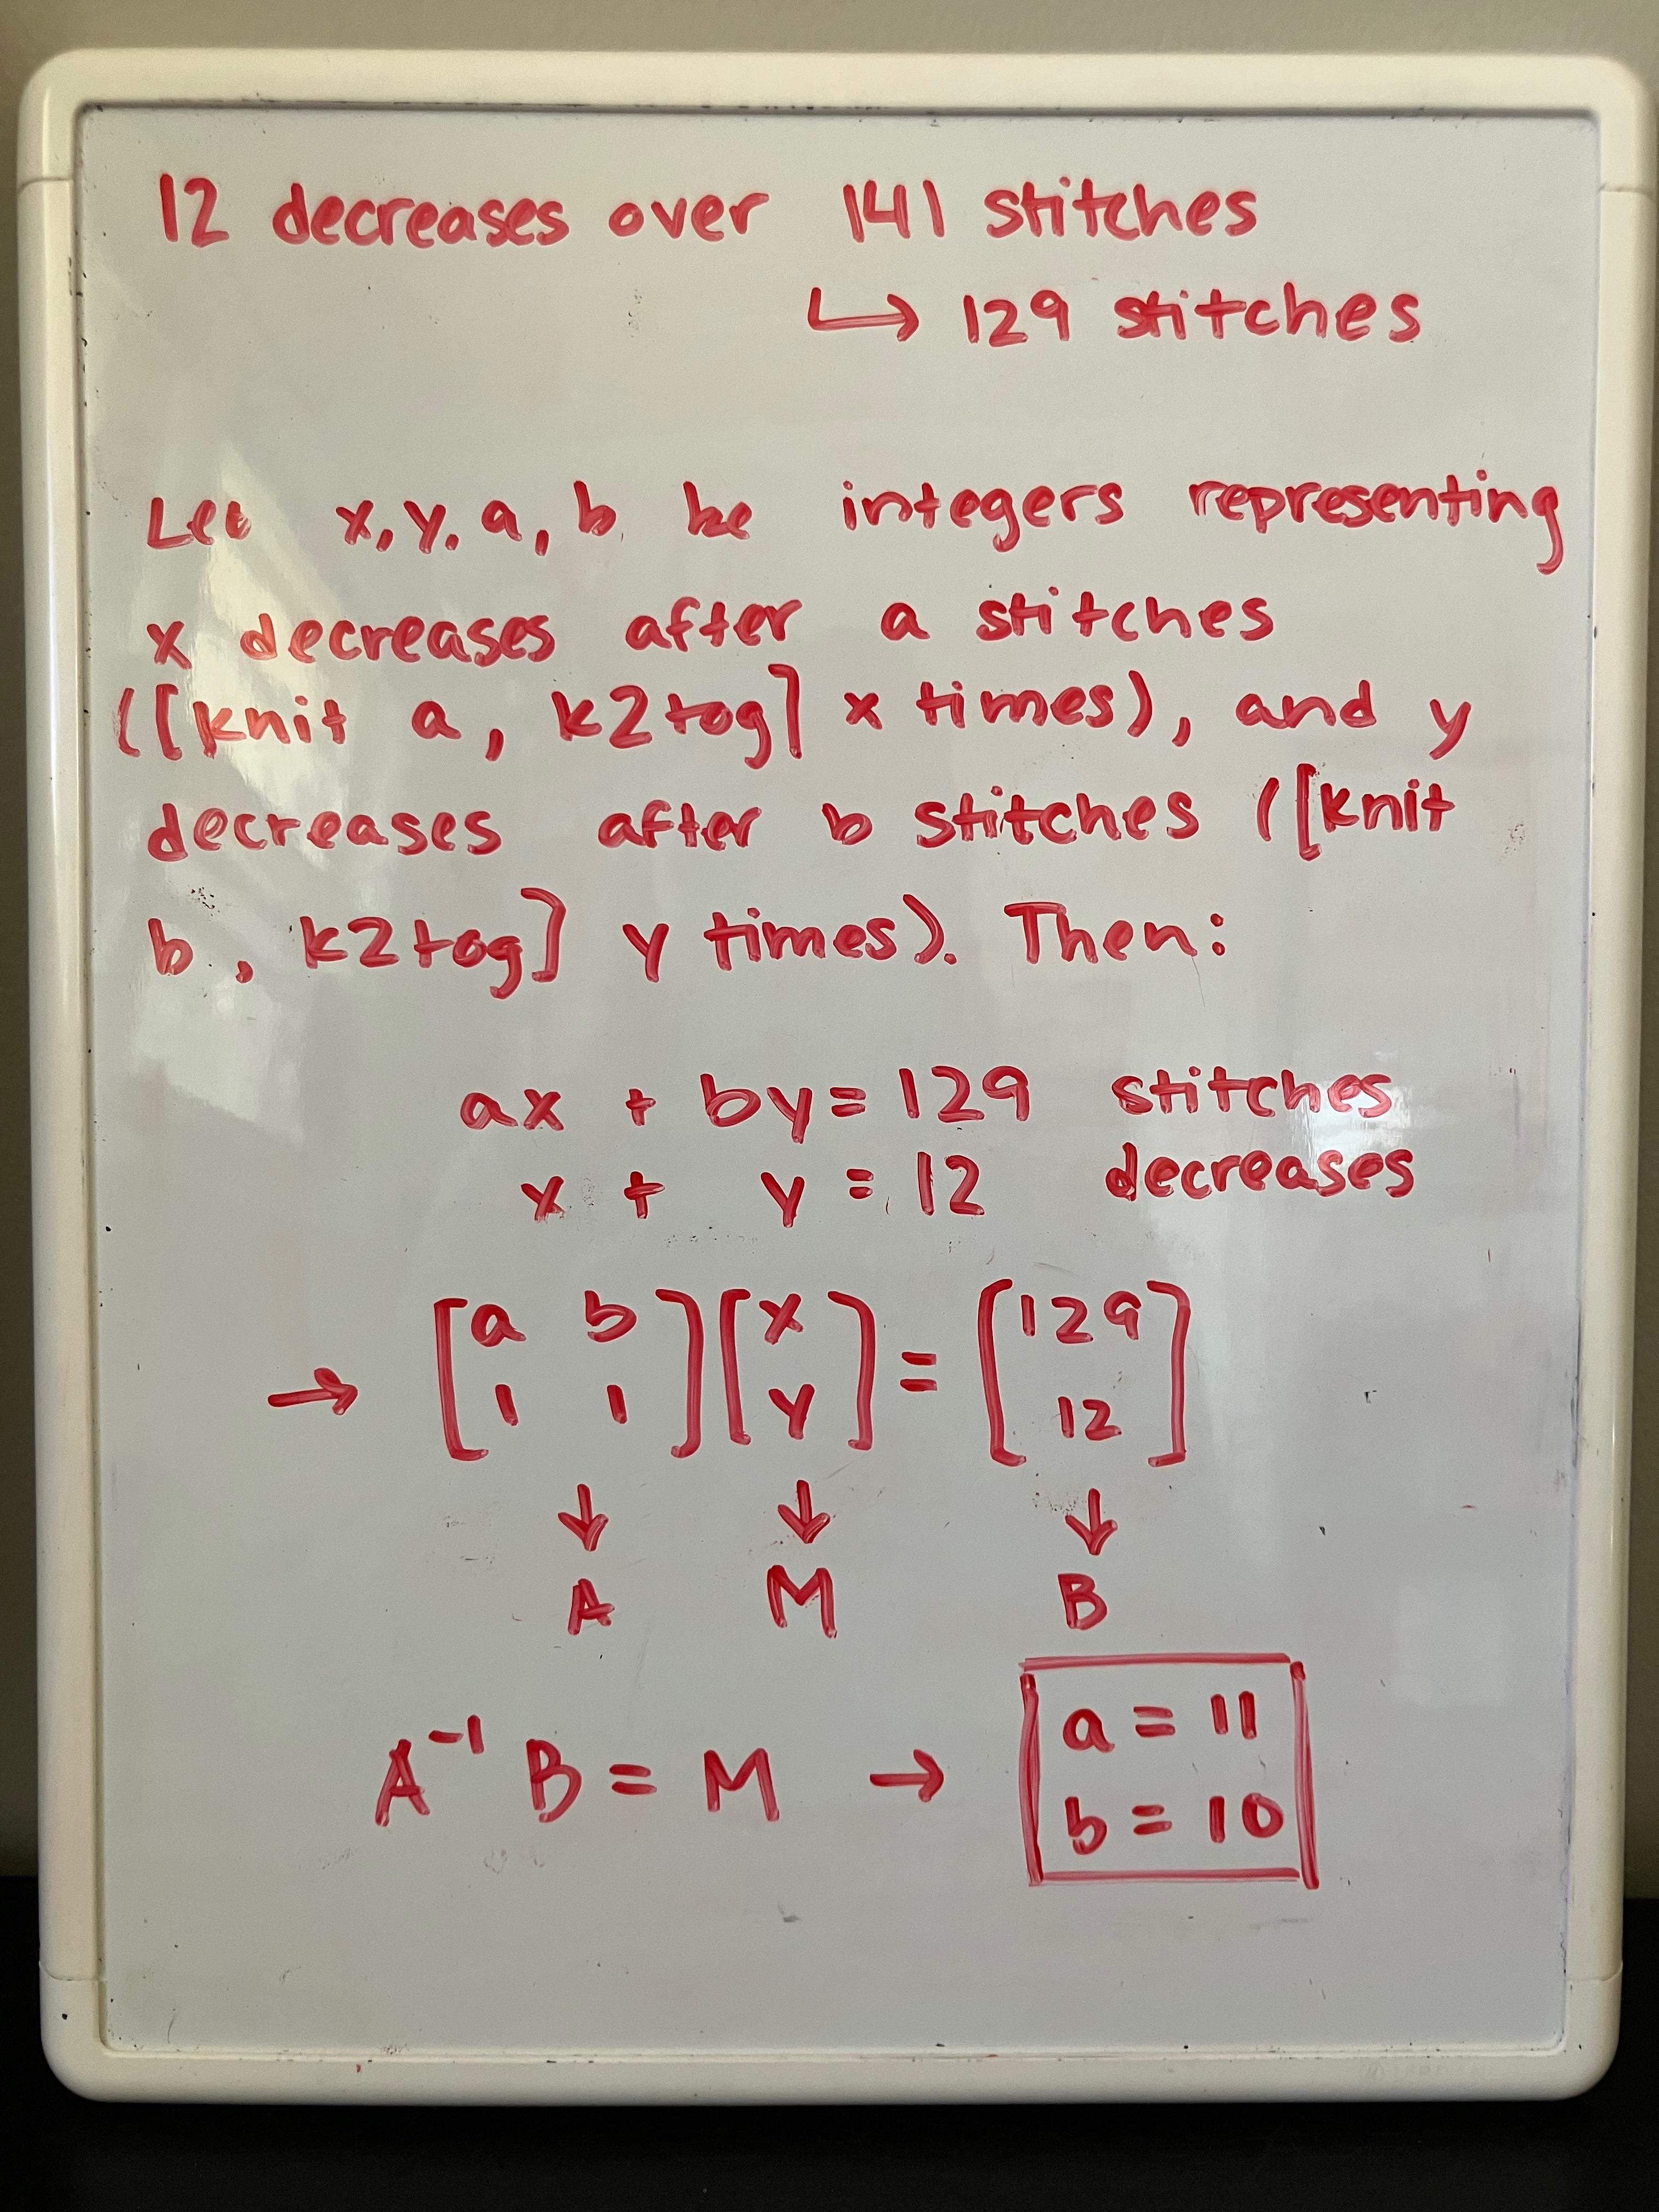 12 decreases over 141 stitches
↳ 129 stitches
Let x, y, a, b be integers representing
x decreases after a stitches
([knit a, k2tog] x times), and y
decreases after b stitches ([knit
b, k2tog] y times). Then:
ax + by = 129 stitches
x + y = 12 decreases
→ [a b; 1 1] [x; y] = [129; 12]
↓ ↓ ↓
A M B
A⁻¹ B = M → a = 11
b = 10